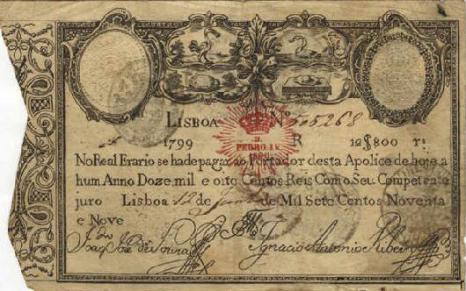 LISBOA N
D.
PEDRO IV
1799 R 12$800 rs
No Real Erario se hade pagar ao Portador desta Apolice de hoje a
hum Anno Doze mil e oito Centos Reis Com o Seu Competente
juro Lisboa 12 de de Mil Sete Centos Noventa
e Nove
Ignacio Antonio Ribeiro